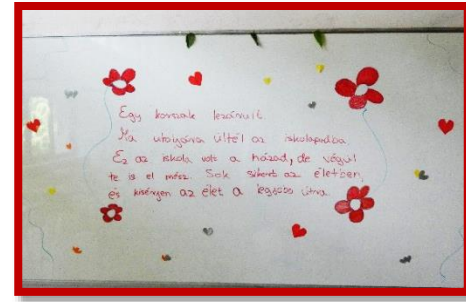 Egy korszak lezárult.
Ma utoljára ültél az iskolapadba
Ez az iskola volt a házad, de végül
te is el mész. Sok sikert az életben,
és kísérjen az élet a legjobb útra.